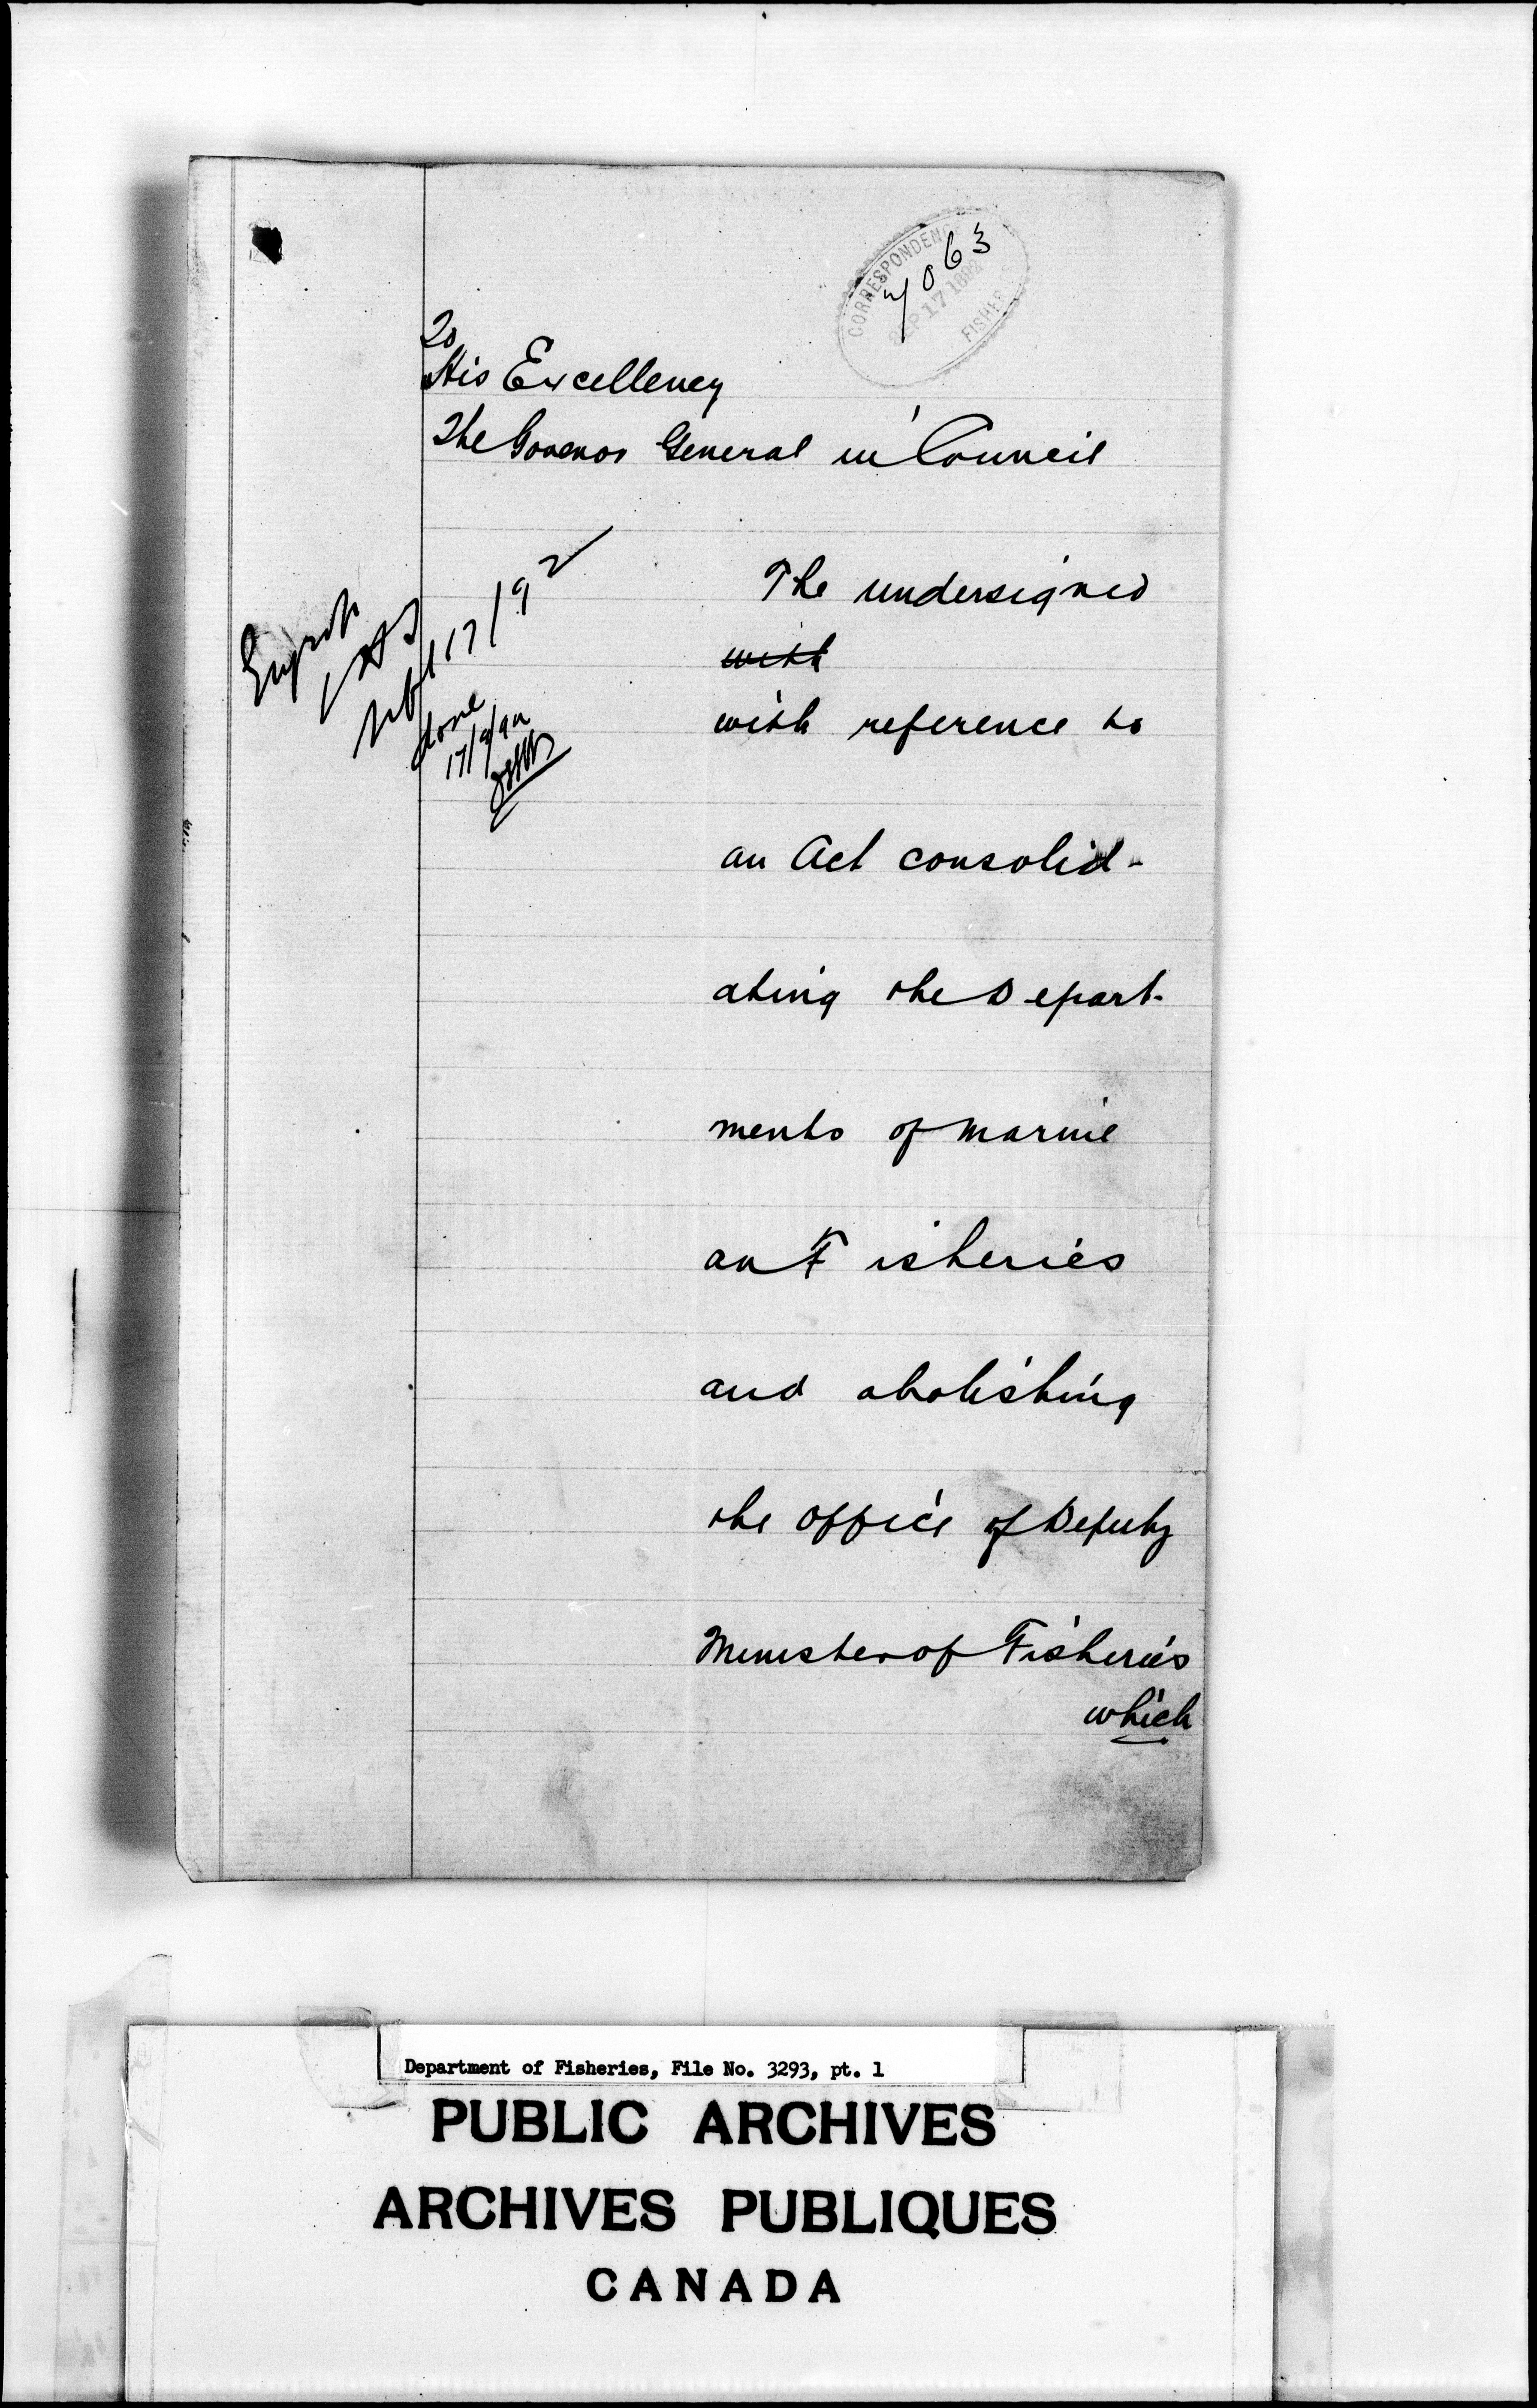 CORRESPONDEN
7063
SEP 17 1892
FISHER S
To
His Excellency
The Govenor General in Council
Sept 17/92
done
17/9/92
The undersigned
with
with reference to
an Act consolid-
ating the Depart-
ments of Marine
an Fisheries
and abolishing
the office of Deputy
Minister of Fisheries
which
Department of Fisheries, File No. 3293, pt. 1
PUBLIC ARCHIVES
ARCHIVES PUBLIQUES
CANADA